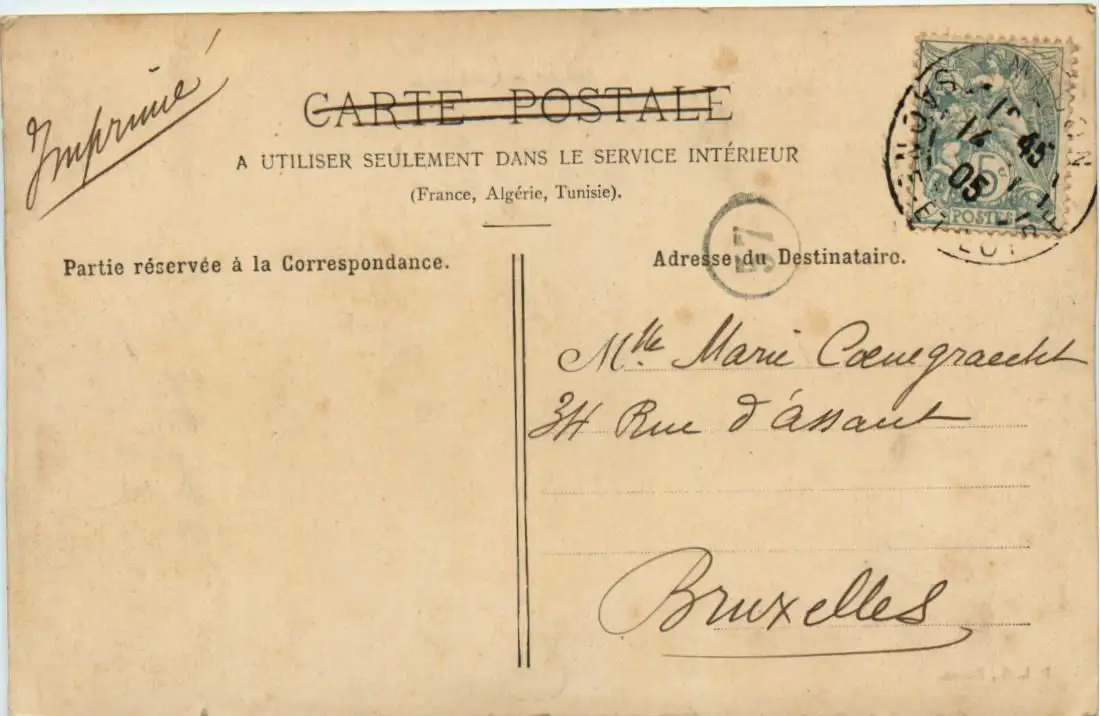 Imprimé
CARTE POSTALE
A UTILISER SEULEMENT DANS LE SERVICE INTÉRIEUR
(France, Algérie, Tunisie).
Partie réservée à la Correspondance.
Adresse du Destinataire.
57
5c
POSTES
14
45
05
SAÔNE-ET-LOIRE
Mlle Marie Coenegraecht
34 Rue d'Assaut
Bruxelles